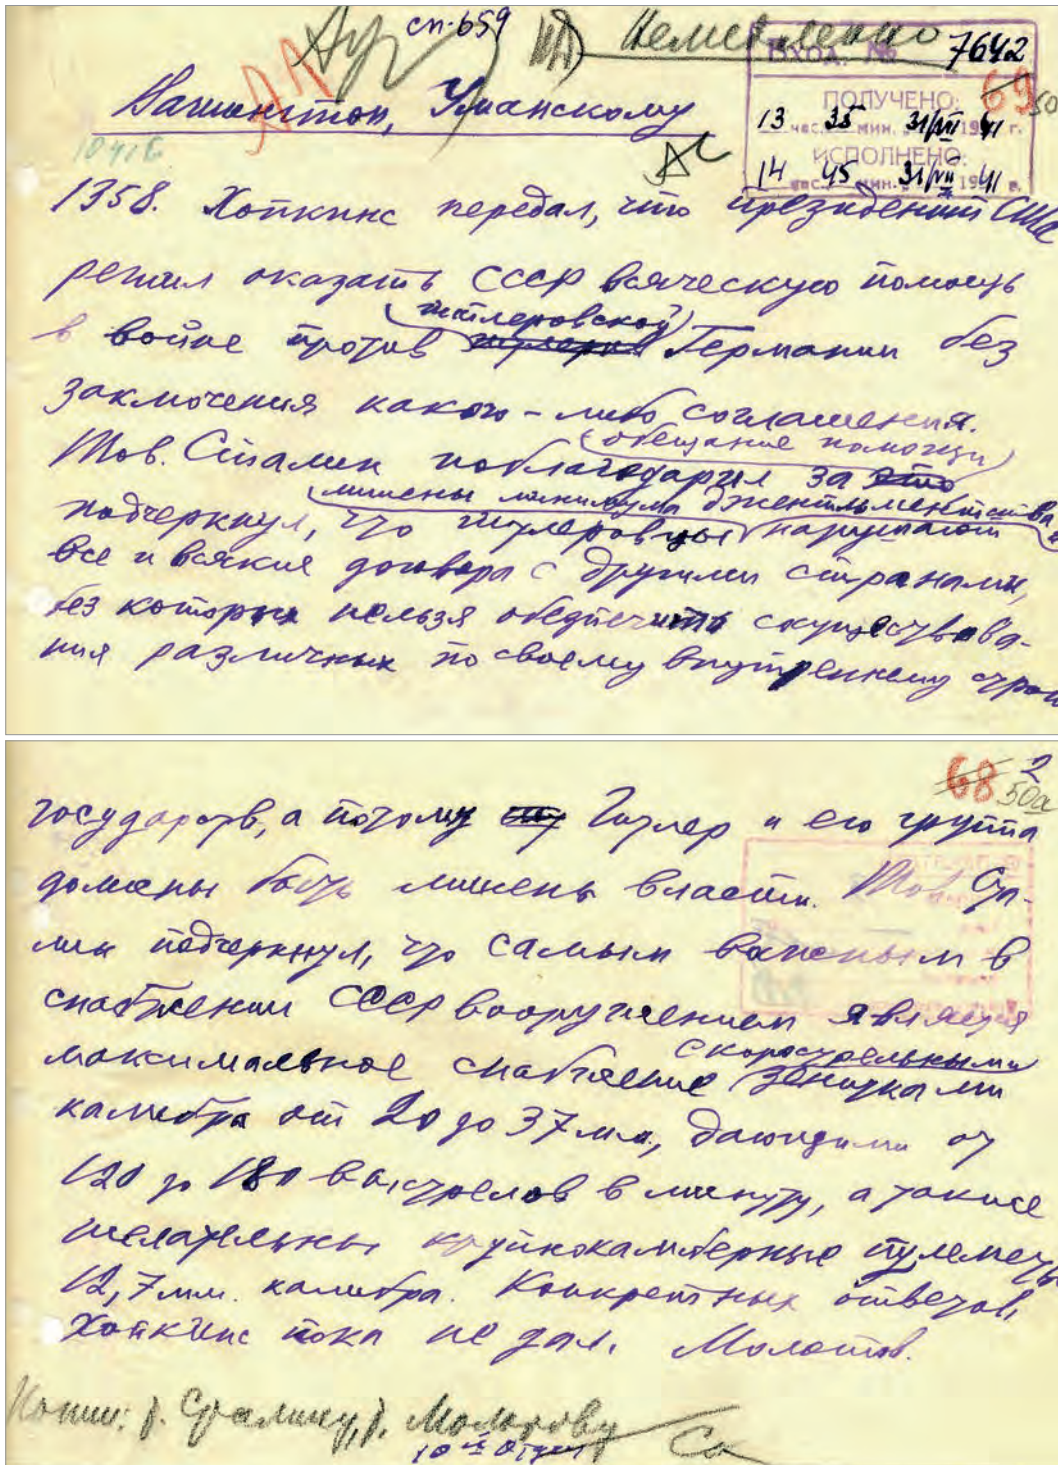 сп-659
Немедленно
Вход. № 7642
69
50
ПОЛУЧЕНО:
13 час. 35 мин. 31/VII 1941 г.
ИСПОЛНЕНО:
14 час. 45 мин. 31/VII 1941 г.
Вашингтон, Уманскому
1358. Хопкинс передал, что президент США
решил оказать СССР всяческую помощь
гитлеровской
в войне против Германии без
заключения какого-либо соглашения.
обещание помощи
Тов. Сталин поблагодарил за это
лишены минимума джентльменства и
подчеркнул, что гитлеровцы нарушают
все и всякие договора с другими странами,
без которых нельзя обеспечить сосуществова-
ния различных по своему внутреннему строю
68 2
50а
государств, а потому Гитлер и его группа
должны быть лишены власти. Тов. Ста-
лин подчеркнул, что самым важным в
снабжении СССР вооружением является
скорострельными
максимальное снабжение зенитками
калибра от 20 до 37 мм, дающими от
120 до 180 выстрелов в минуту, а также
желательны крупнокалиберные пулеметы
12,7 мм. калибра. Конкретных ответов
Хопкинс пока не дал. Молотов.
Копии: т. Сталину, т. Молотову
10й Отдел